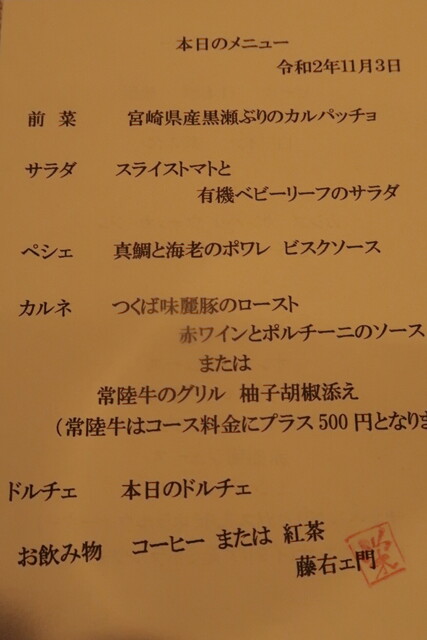 本日のメニュー
令和2年11月3日
前 菜 宮崎県産黒瀬ぶりのカルパッチョ
サラダ スライストマトと
有機ベビーリーフのサラダ
ペシェ 真鯛と海老のポワレ ビスクソース
カルネ つくば味麗豚のロースト
赤ワインとポルチーニのソース
または
常陸牛のグリル 柚子胡椒添え
(常陸牛はコース料金にプラス500円となりま
ドルチェ 本日のドルチェ
お飲み物 コーヒー または 紅茶
藤右ェ門